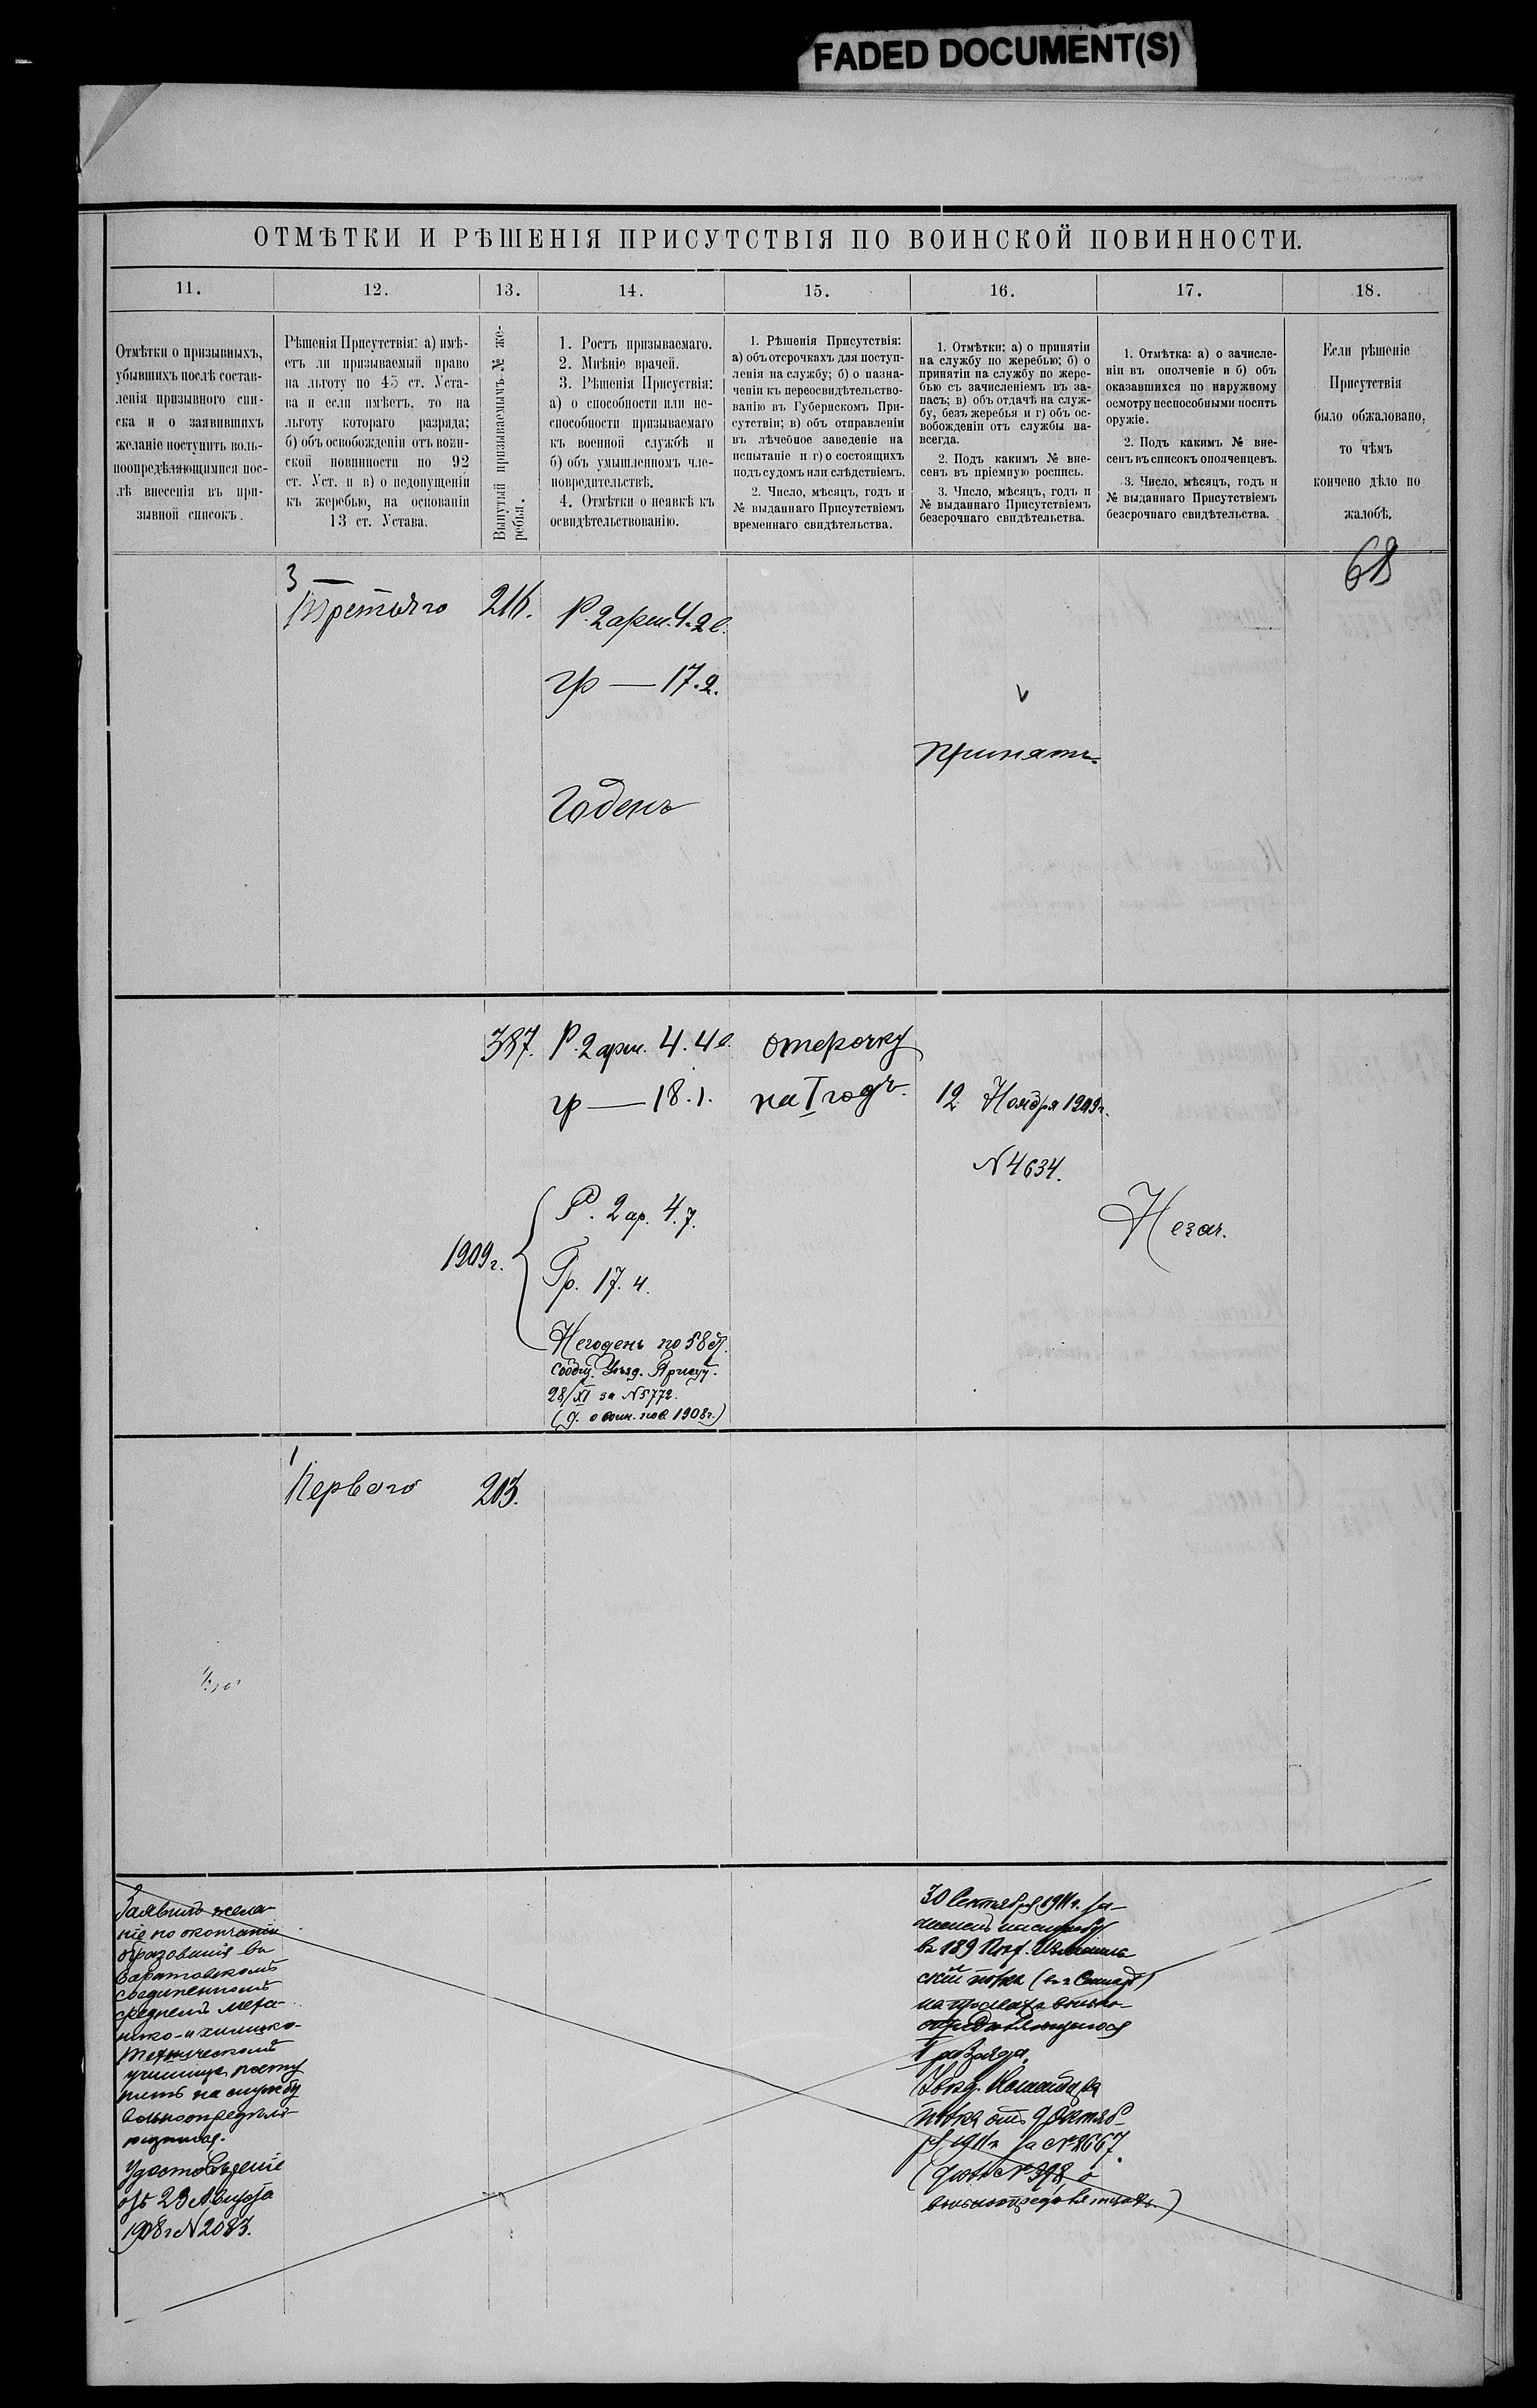 FADED DOCUMENT(S)
ОТМѢТКИ И РѢШЕНІЯ ПРИСУТСТВІЯ ПО ВОИНСКОЙ ПОВИННОСТИ.
11.
12.
13.
14.
15.
16.
17.
18.
Отмѣтки о призывныхъ,
убывшихъ послѣ состав-
ленія призывного спи-
ска и о заявившихъ
желаніе поступить воль-
ноопредѣляющимися пос-
лѣ внесенія въ при-
зывной списокъ.
Рѣшенія Присутствія: а) имѣ-
етъ ли призываемый право
на льготу по 45 ст. Уста-
ва и если имѣетъ, то на
льготу котораго разряда;
б) объ освобожденіи отъ воин-
ской повинности по 92
ст. Уст. и в) о недопущеніи
къ жеребью, на основаніи
13 ст. Устава.
Вынутый призываемымъ № же-
ребья.
1. Ростъ призываемаго.
2. Мнѣніе врачей.
3. Рѣшенія Присутствія:
а) о способности или не-
способности призываемаго
къ военной службѣ и
б) объ умышленномъ чле-
новредительствѣ.
4. Отмѣтки о неявкѣ къ
освидѣтельствованію.
1. Рѣшенія Присутствія:
а) объ отсрочкахъ для поступ-
ленія на службу; б) о назна-
ченіи къ переосвидѣтельство-
ванію въ Губернскомъ При-
сутствіи; в) объ отправленіи
въ лѣчебное заведеніе на
испытаніе и г) о состоящихъ
подъ судомъ или слѣдствіемъ.
2. Число, мѣсяцъ, годъ и
№ выданнаго Присутствіемъ
временнаго свидѣтельства.
1. Отмѣтки: а) о принятіи
на службу по жеребью; б) о
принятіи на службу по жере-
бью съ зачисленіемъ въ за-
пасъ; в) объ отдачѣ на служ-
бу, безъ жеребья и г) объ ос-
вобожденіи отъ службы на-
всегда.
2. Подъ какимъ № вне-
сенъ въ пріемную роспись.
3. Число, мѣсяцъ, годъ и
№ выданнаго Присутствіемъ
безсрочнаго свидѣтельства.
1. Отмѣтка: а) о зачисле-
ніи въ ополченіе и б) объ
оказавшихся по наружному
осмотру неспособными носить
оружіе.
2. Подъ какимъ № вне-
сенъ въ списокъ ополченцевъ.
3. Число, мѣсяцъ, годъ и
№ выданнаго Присутствіемъ
безсрочнаго свидѣтельства.
Если рѣшеніе
Присутствія
было обжаловано,
то чѣмъ
кончено дѣло по
жалобѣ.
68
3 —
Третьяго
216.
Р. 2 арш. 4. 2 в.
гр — 17.2.
Годенъ
v
принятъ.
387.
Р. 2 арш. 4. 4 в.
гр — 18.1.
отсрочку
на I годъ.
12 Ноября 1909 г.
N 4634.
Незач.
1909 г.
Р. 2 ар. 4.7.
Гр. 17. 4.
Негоденъ по 58 ст.
сообщ. Уѣзд. Присут.
28/XI за N 5772.
(д. о воин. пов. 1908 г.)
1
Перваго
203.
Заявилъ жела-
ніе по окончаніи
образованія въ
Саратовскомъ
соединенномъ
среднемъ меха-
нико-и химико-
техническомъ
училищѣ посту
пить на службу
вольноопредѣля-
ющимся.
Удостовѣреніе
отъ 29 Августа
1908 г N 2083.
30 Сентября 1911 г. за-
численъ на службу
въ 189 Пѣх. Измаиль-
скій полкъ
на правахъ вольно-
опредѣляющагося
разряда.
Увѣд. Командира
полка отъ 9 Октяб-
ря 1911 г за № 8667.
(дѣло № 398 о
вольноопредѣляющихся.)